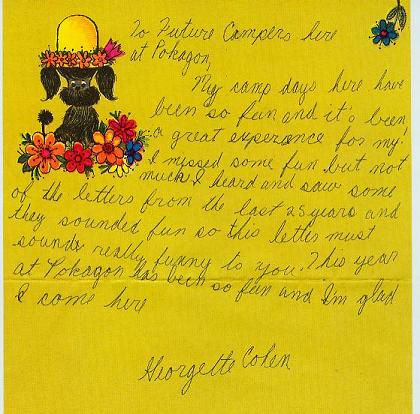 To Future Campers here
at Pokagon,
My camp days here have
been so fun and it's been
a great experance for my.
I missed some fun but not
much. I heard and saw some
of the letters from the last 25 years and
they sounded fun so this letter must
sounds really funny to you. This year
at Pokagon has been so fun and I'm glad
I come here
Georgette Cohen